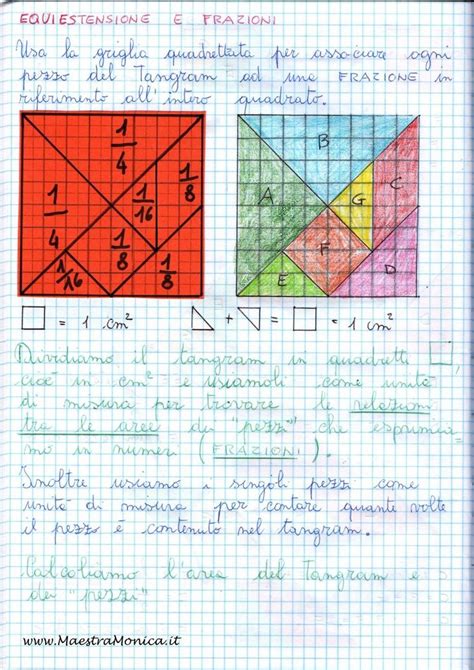 EQUIESTENSIONE E FRAZIONI
Usa la griglia quadrettata per associare ogni
pezzo del Tangram ad una FRAZIONE in
riferimento all'intero quadrato.
1/4
1/4
1/16
1/8
1/8
1/8
1/16
A
B
C
D
E
F
G
= 1 cm²
+ = = 1 cm²
Dividiamo il tangram in quadretti ,
cioè in cm² e usiamoli come unità
di misura per trovare le relazioni
tra le aree dei "pezzi" che esprimia-
mo in numeri (FRAZIONI).
Inoltre usiamo i singoli pezzi come
unità di misura per contare quante volte
il pezzo è contenuto nel tangram.
Calcoliamo l'area del Tangram e
dei "pezzi"
www.MaestraMonica.it